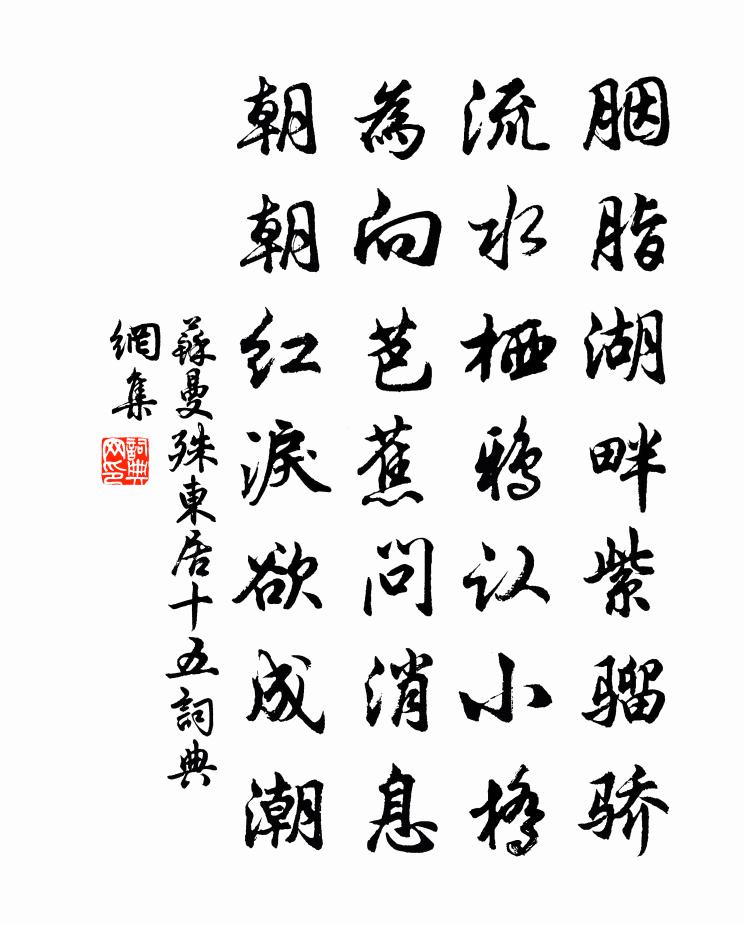 胭脂湖畔紫骝骄
流水栖鸦认小桥
為向芭蕉問消息
朝朝红淚欲成潮
蘇曼殊東居十五詞典
網集
詞典網印